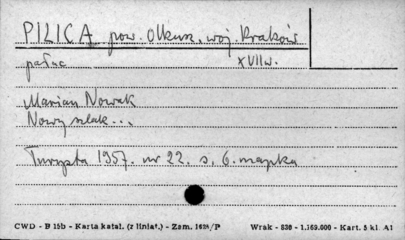 PILICA pow. Olkusz, woj. Kraków
pałac XVII w.
Marian Nowak
Nowy szlak...
Turysta 1957. nr 22. s. 6. mapka
CWD - B 15b - Karta katal. (z liniat.) - Zam. 1624/P Wrak - 830 - 1.769.000 - Kart. 5 kl. A1